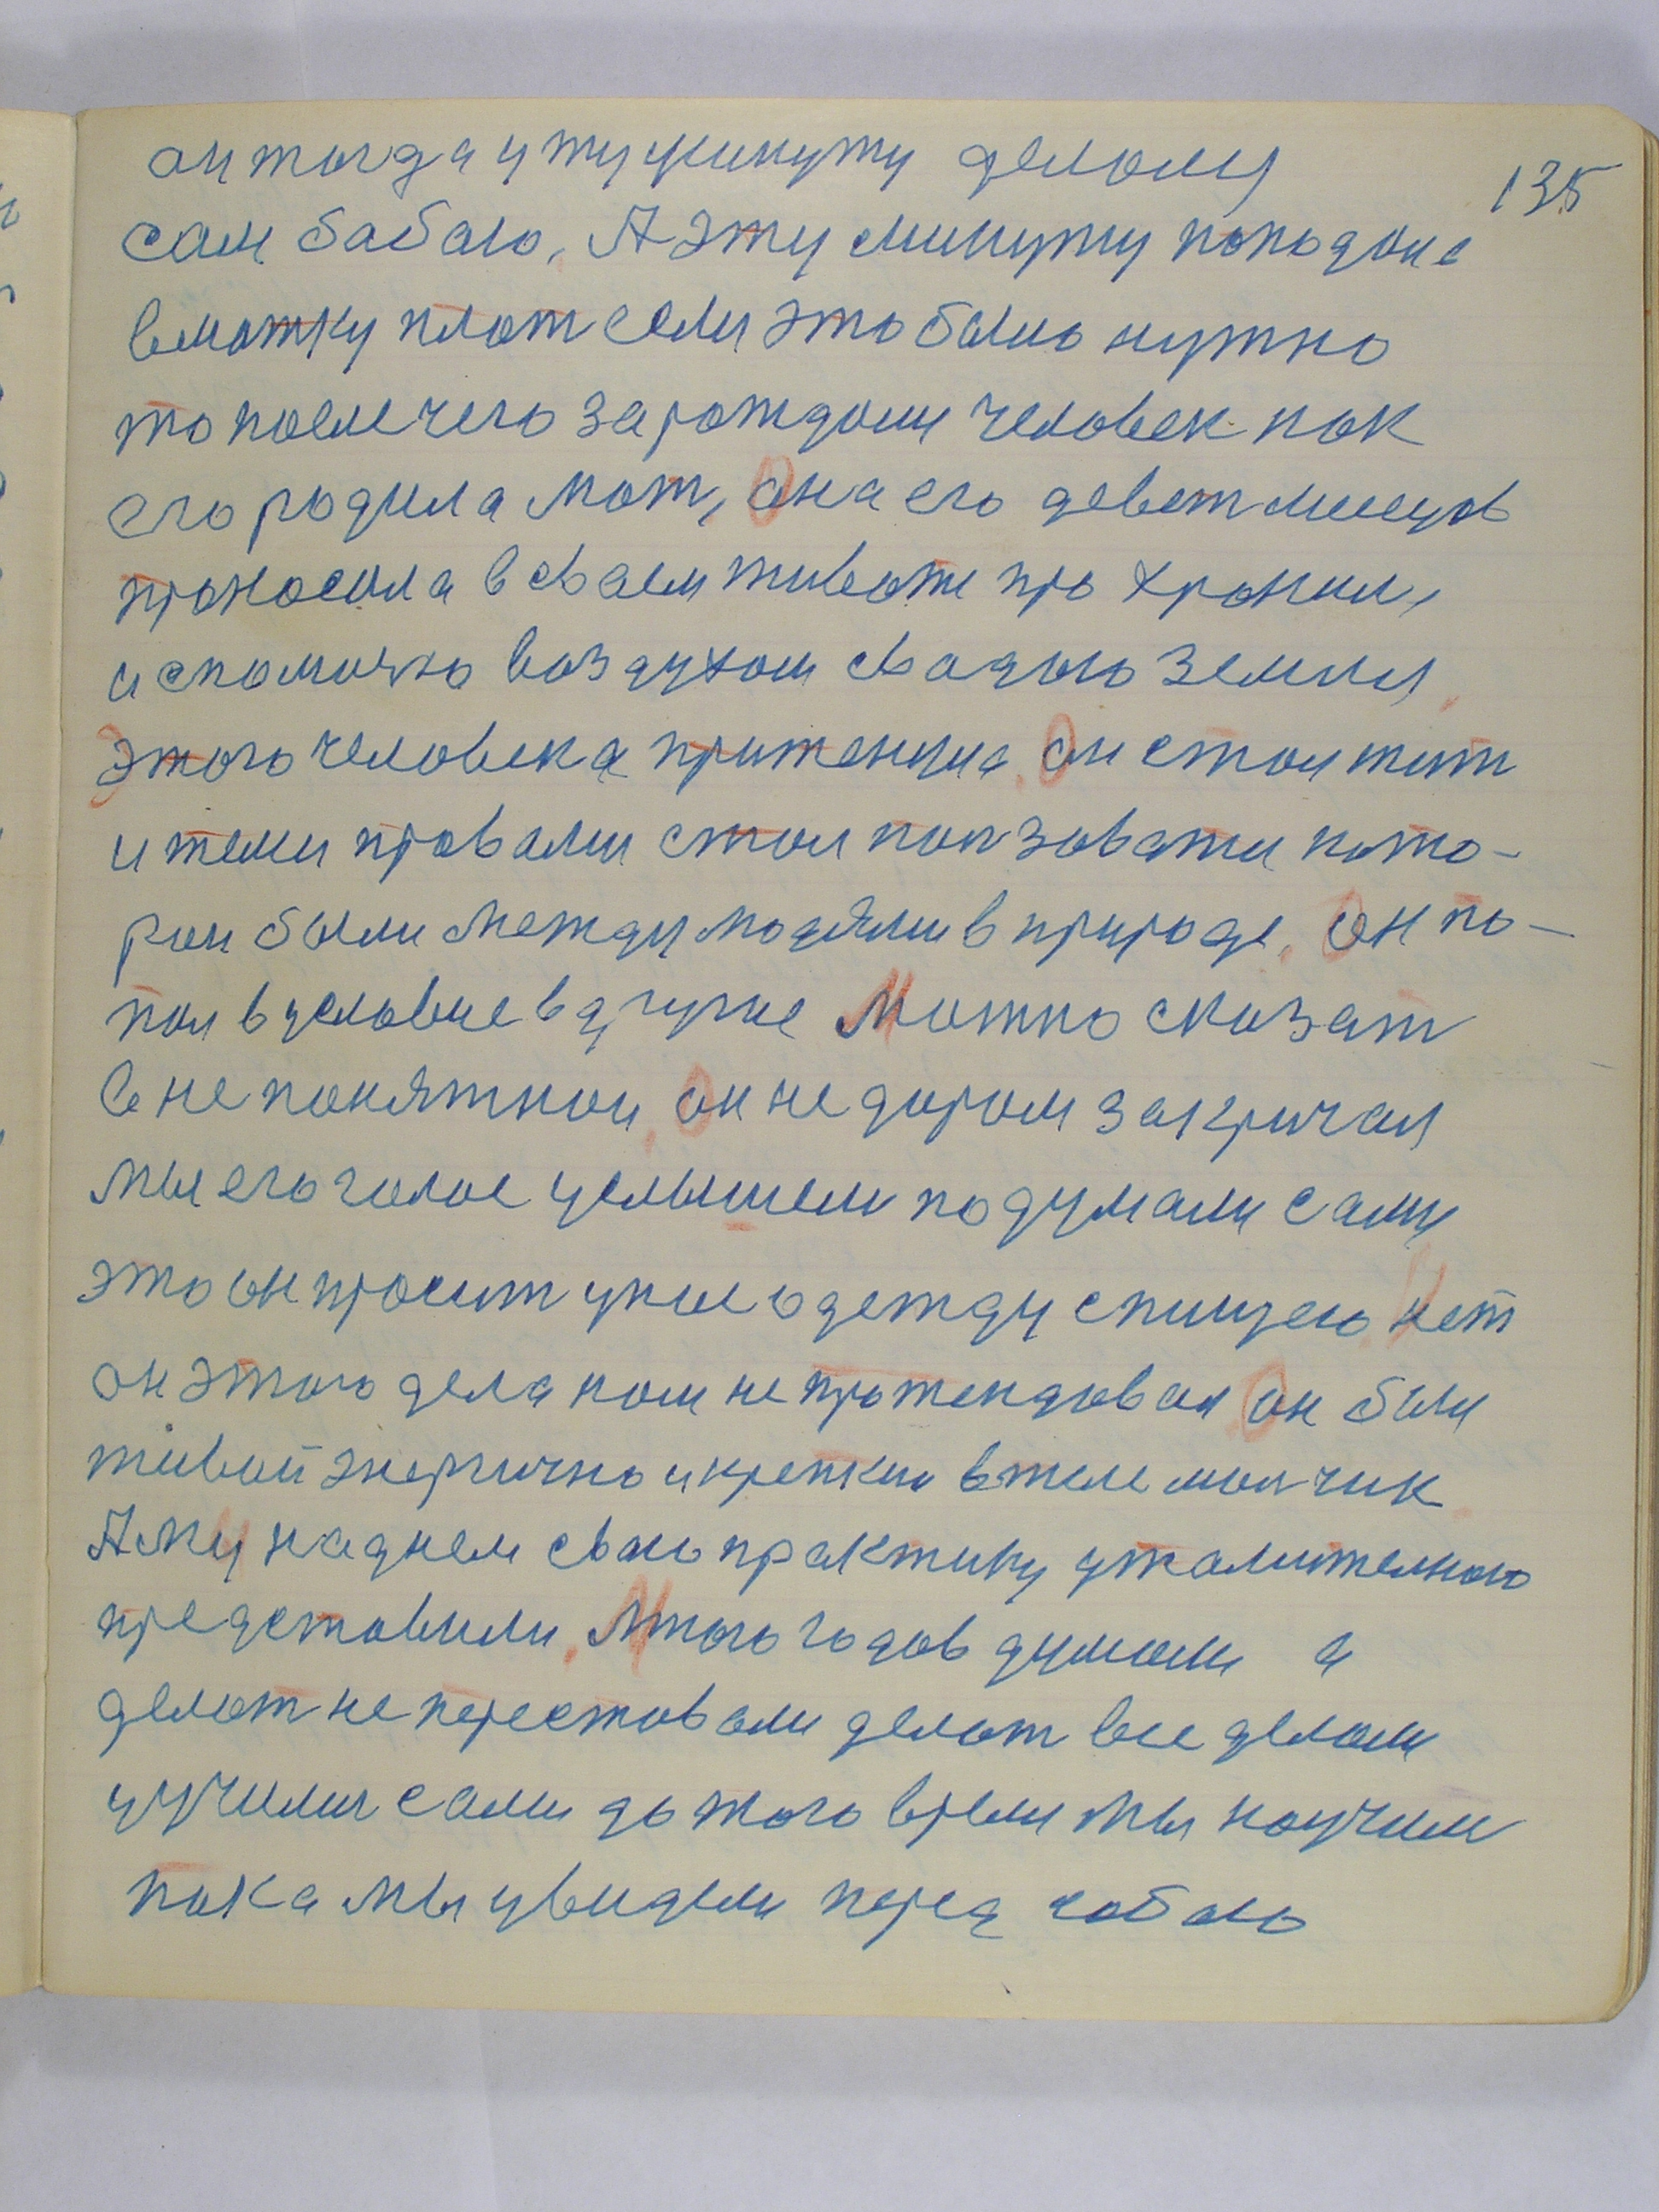 он тогда у ту минуту делому
135
сам бабаю, А эту минуту попадоие
в матку плат если это было нужно
то после чего зарождали человек как
его родила мат, она его девет месецов
проносила в своем животе про хронил,
и спомочю воздухом сводою земля
этого человека притенция. он стол жит
и теми правами стал ползовати кото-
рои были между людями в природе. Он по-
пал в условие в другие Можно сказат
в не понятной. он не даром закричал
мы его голос услышели подумали сами
это он просит у нас одежду спищею нет
он этого дела нам не протендовал он были
живой энергично и крепким в теле малчик
А мы на днем свою практику ужалителного
представили. Много годов думали а
делат не переставали делат все делали
у училися сами до того время мы научили
пока мы увидели перед собаю